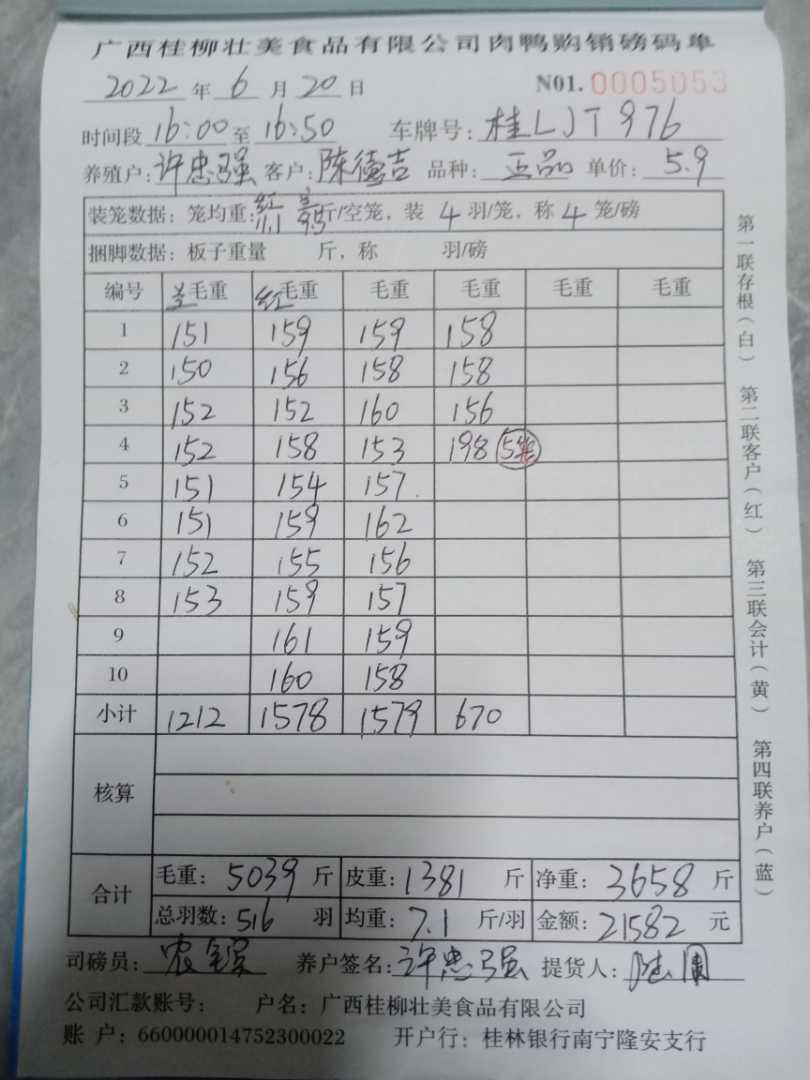 广西桂柳壮美食品有限公司肉鸭购销磅码单
2022 年 6 月 20 日 N01. 0005053
时间段 16:00 至 16:50 车牌号: 桂LJT976
养殖户: 许忠强 客户: 陈德吉 品种: 正品 单价: 5.9
装笼数据: 笼均重: 红 11.1 兰 9.5 斤/空笼, 装 4 羽/笼, 称 4 笼/磅
捆脚数据: 板子重量 斤, 称 羽/磅
编号 兰毛重 红毛重 毛重 毛重 毛重 毛重
1 151 159 159 158
2 150 156 158 158
3 152 152 160 156
4 152 158 153 198 5笼
5 151 154 157
6 151 159 162
7 152 155 156
8 153 159 157
9 161 159
10 160 158
小计 1212 1578 1579 670
核算
合计
毛重: 5039 斤 皮重: 1381 斤 净重: 3658 斤
总羽数: 516 羽 均重: 7.1 斤/羽 金额: 21582 元
司磅员: 养户签名: 许忠强 提货人:
公司汇款账号: 户名: 广西桂柳壮美食品有限公司
账 户: 660000014752300022 开户行: 桂林银行南宁隆安支行
第一联存根(白) 第二联客户(红) 第三联会计(黄) 第四联养户(蓝)